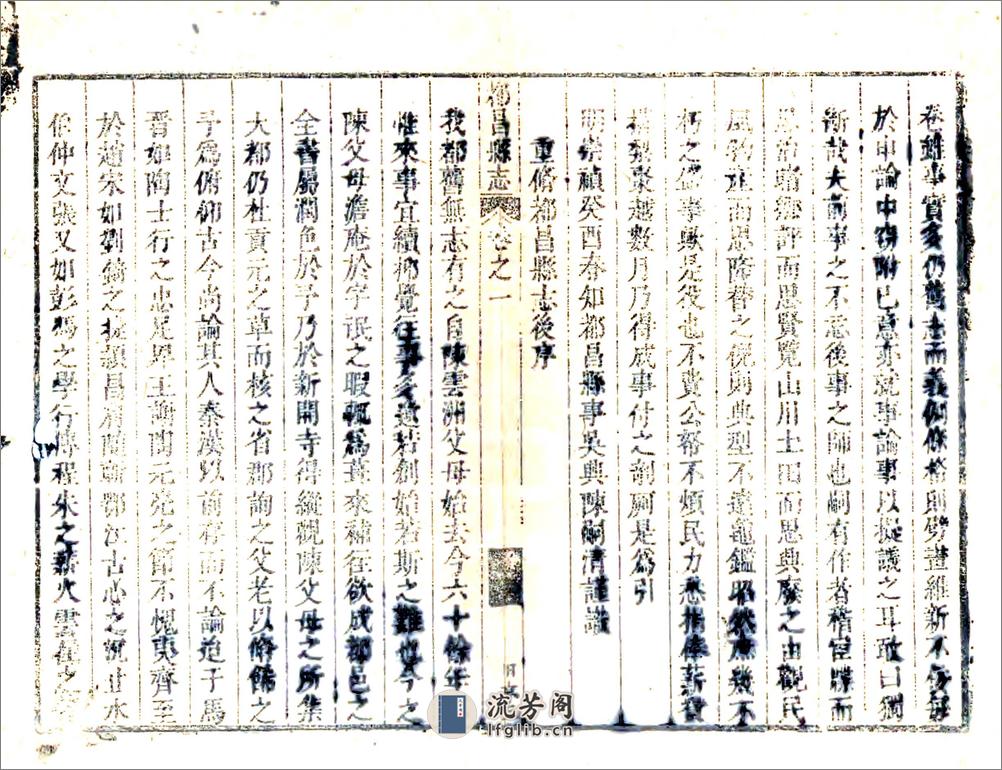 卷雖事實多仍舊志而義例條格則劈畫維新不侫每
於中論中竊附己意亦就事論事以擬議之耳敢曰獨
斷哉夫前事之不忘後事之師也嗣有作者稽宦牒而
思治睹鄉評而思賢覽山川土田而思典廢之由觀民
風物產而思降替之俔則典型不遠龜鑑昭然庶幾不
朽之事歟是役也不費公帑不煩民力悉捐俸薪
棗越數月乃得成事付之剞劂是爲引
明崇禎癸酉春知都昌縣事吳興陳嗣清謹識
重脩都昌縣志後序
都昌縣志 卷之一
我都舊無志有之自陳雲洲父母始去今六十餘年
惟來事宜續抑覺往事多遺若創始若斯之難也今之
陳父母澹庵於字氓之暇輒爲蒐來補往欲成都邑之
全書屬潤色於予乃於新開寺得縱觀陳父母之所集
大都仍杜貢元之草而核之省郡詢之父老以脩飾之
予爲俯仰古今尚論其人秦漢以前存而不論迨予馬
晉如陶士行之忠足界王謝陶元亮之節不愧夷齊至
於趙宋如劉錡之擬讓昌江古心之沉止水
伯仲文張又如彭馮之學行傳程朱之薪火雲
流芳阁
lfglib.cn